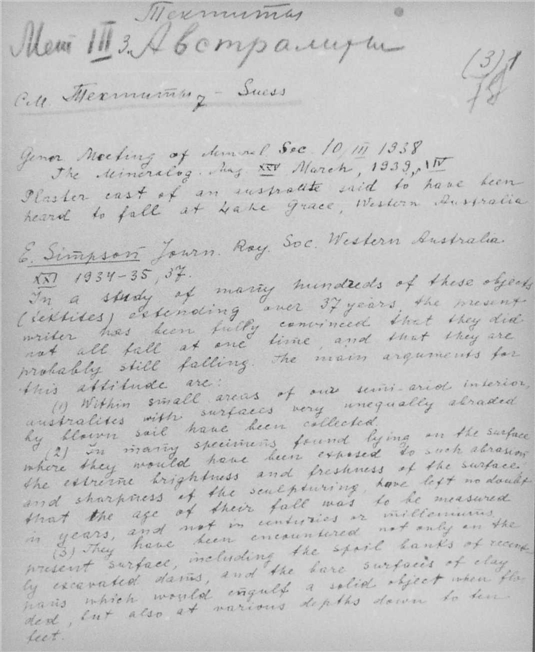 Тектиты
Мет III 3. Австралиты
(3) 1
78
См. Тектиты - Suess
Gener Meeting of Mineral Soc. 10, III 1938
The Mineralog. Mag XXV March, 1939, XIV
Plaster cast of an australite said to have been
heard to fall at Lake Grace, Western Australia
E. Simpson Journ. Roy. Soc. Western Australia.
XXI 1934-35, 37.
In a study of many hundreds of these objects
(textites) extending over 37 years, the present
writer has been fully convinced that they did
not all fall at one time, and that they are
probably still falling. The main arguments for
this attitude are:
(1) Within small areas of our semi-arid interior,
australites with surfaces very unequally abraded
by blown soil have been collected
(2) In many specimens found lying on the surface
where they would have been exposed to such abrasion
the extreme brightness and freshness of the surface
and sharpness of the sculpturing, have left no doubt
that the age of their fall was to be measured
in years, and not in centuries or milleniums,
(3) They have been encountered not only on the
present surface, including the spoil banks of recent-
ly excavated dams, and the bare surfaces of clay
pans which would engulf a solid object when floo-
ded, but also at various depths down to ten
feet.